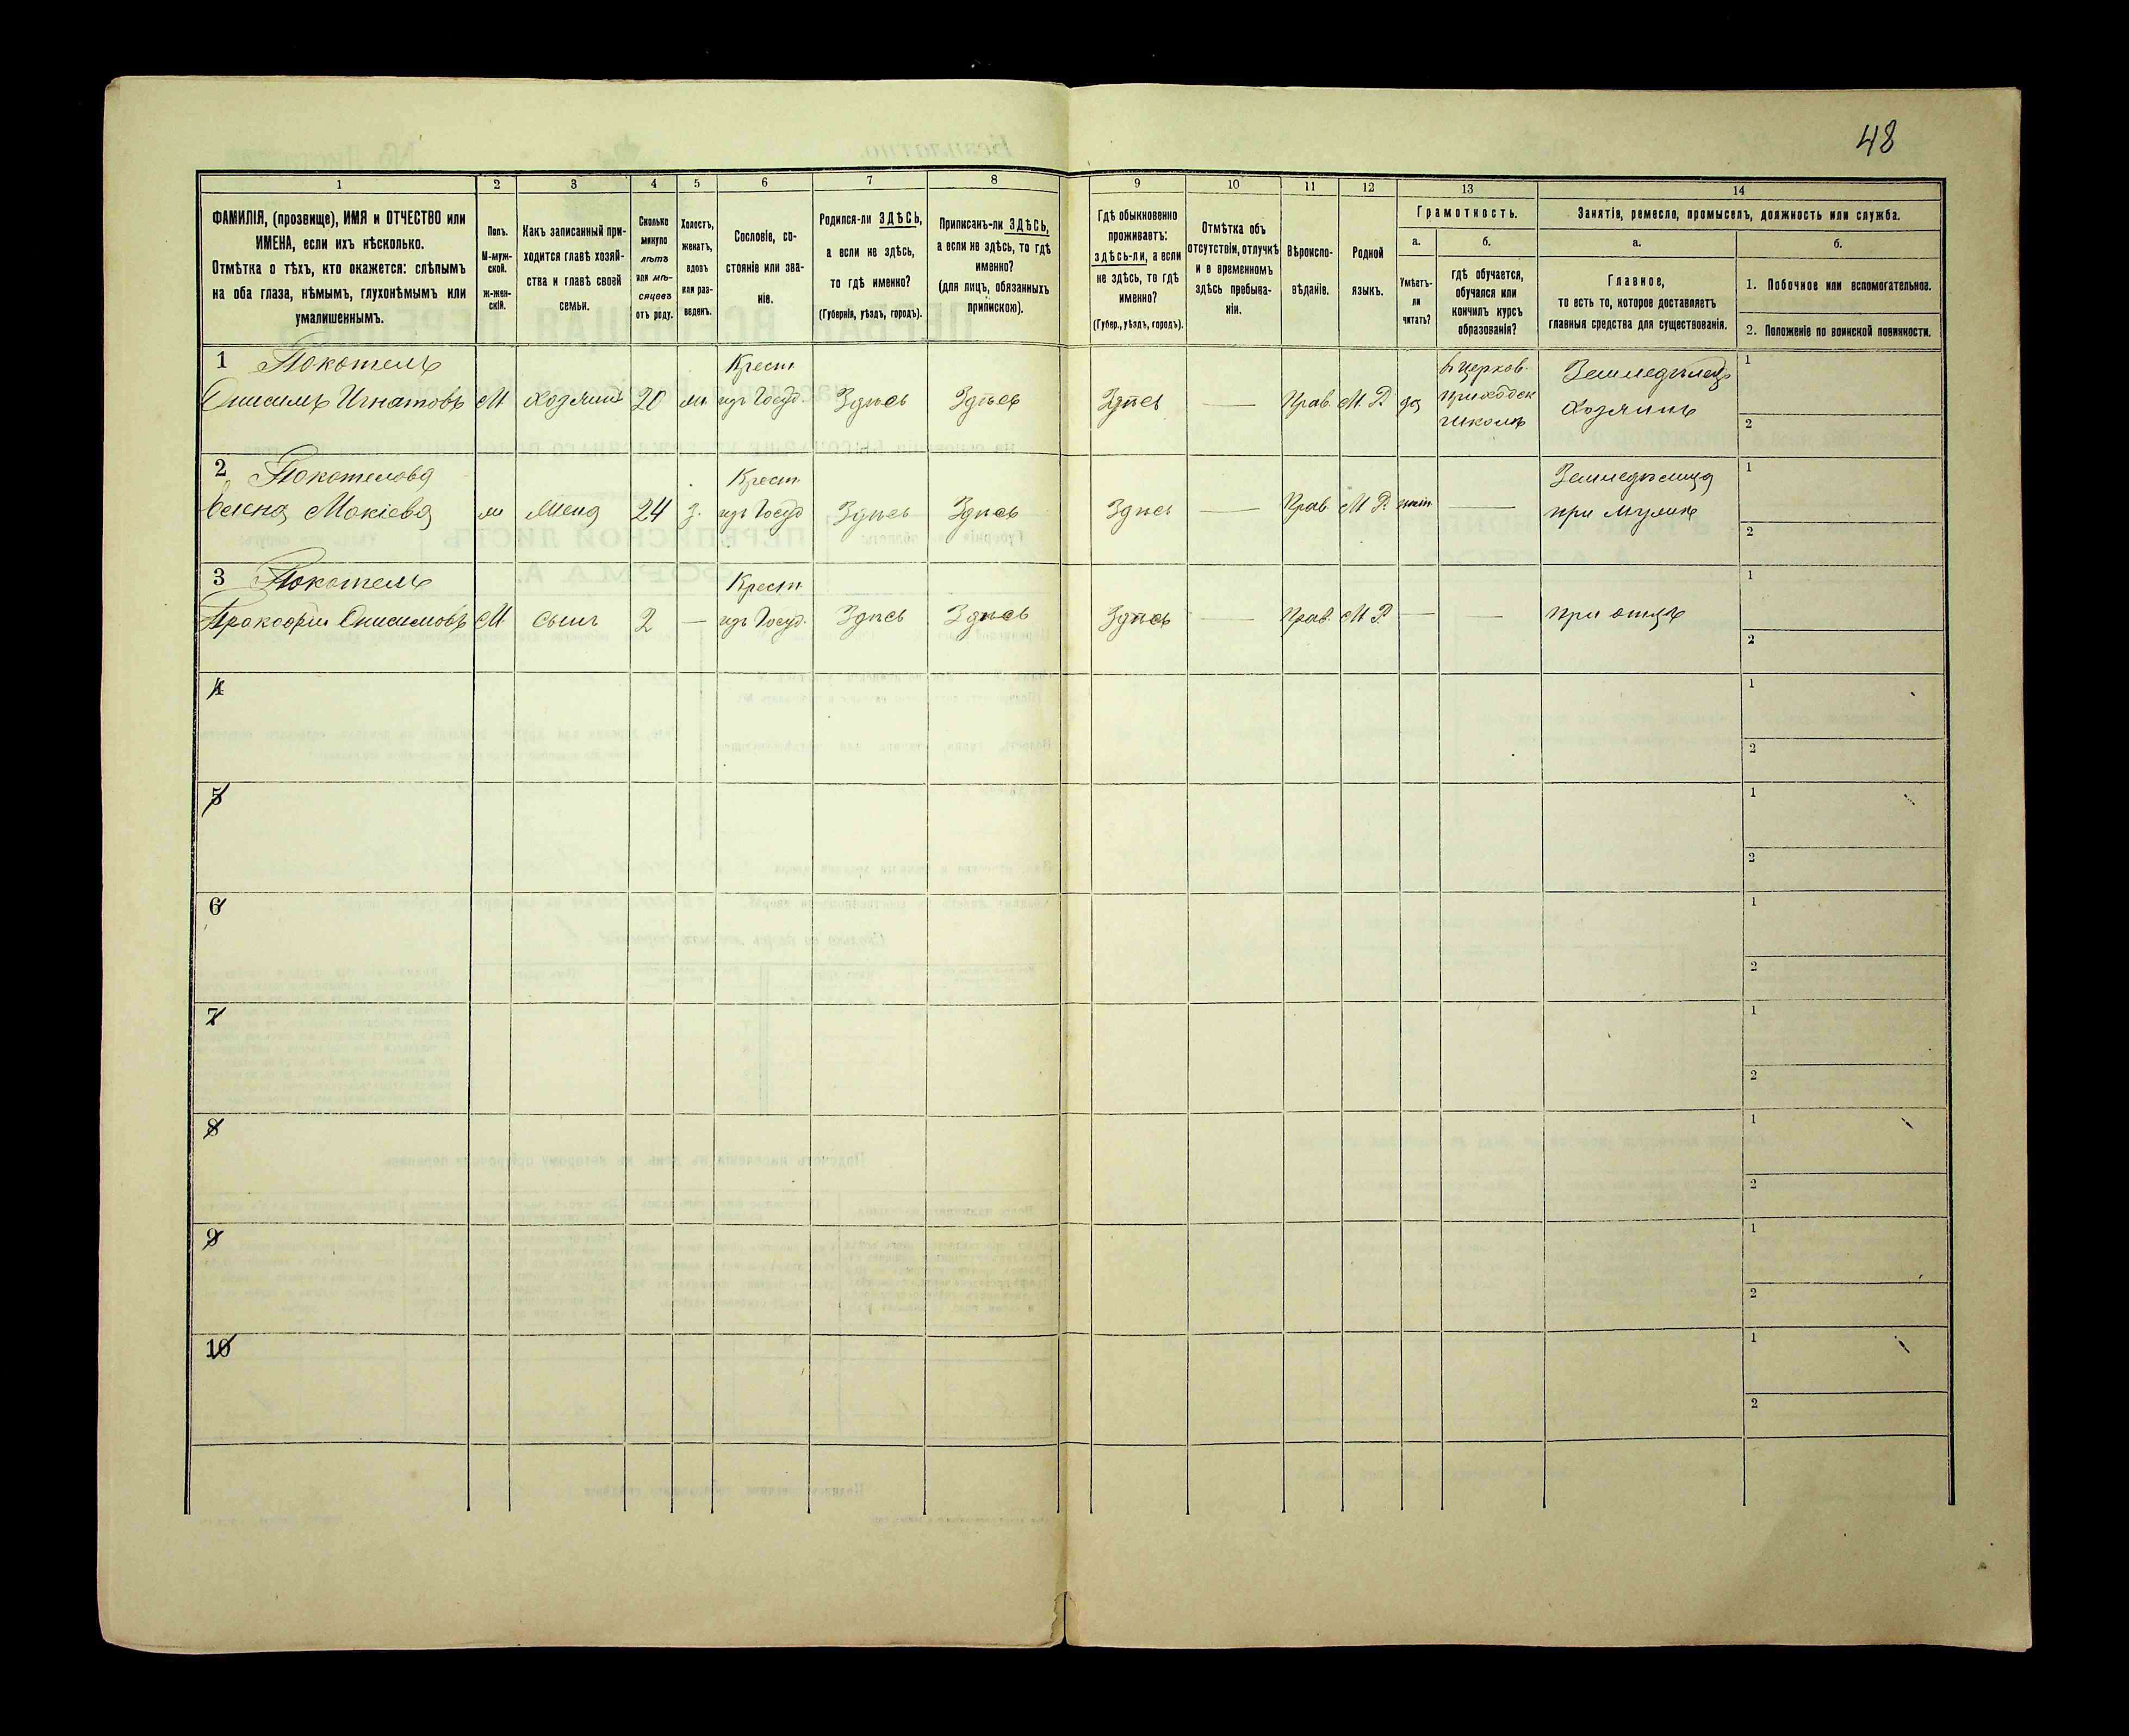 48
1 2 3 4 5 6 7 8 9 10 11 12 13 14
ФАМИЛІЯ, (прозвище), ИМЯ и ОТЧЕСТВО или
ИМЕНА, если ихъ нѣсколько.
Отмѣтка о тѣхъ, кто окажется: слѣпымъ
на оба глаза, нѣмымъ, глухонѣмымъ или
умалишеннымъ.
Полъ.
М-муж-
ской.
Ж-жен-
скій.
Какъ записанный при-
ходится главѣ хозяй-
ства и главѣ своей
семьи.
Сколько
минуло
лѣтъ
или мѣ-
сяцевъ
отъ роду.
Холостъ,
женатъ,
вдовъ
или раз-
веденъ.
Сословіе, со-
стояніе или зва-
ніе.
Родился-ли ЗДѢСЬ,
а если не здѣсь,
то гдѣ именно?
(Губернія, уѣздъ, городъ).
Приписанъ-ли ЗДѢСЬ,
а если не здѣсь, то гдѣ
именно?
(для лицъ, обязанныхъ
припискою).
Гдѣ обыкновенно
проживаетъ:
здѣсь-ли, а если
не здѣсь, то гдѣ
именно?
(Губер., уѣздъ, городъ).
Отмѣтка объ
отсутствіи, отлучкѣ
и о временномъ
здѣсь пребыва-
ніи.
Вѣроиспо-
вѣданіе.
Родной
языкъ.
Грамотность.
а.
Умѣетъ-
ли
читать?
б.
гдѣ обучается,
обучался или
кончилъ курсъ
образованія?
Занятіе, ремесло, промыселъ, должность или служба.
а.
Главное,
то есть то, которое доставляетъ
главныя средства для существованія.
б.
1. Побочное или вспомогательное.
2. Положеніе по воинской повинности.
1 Покотель Крест. в церков. Земледѣлецъ 1
Онисимъ Игнатовъ М Хозяинъ 20 ж. изъ Госуд. Здѣсь Здѣсь Здѣсь — Прав. М. Р. да приходск Хозяинъ
школѣ 2
2 Покотелова Крест. Земледѣлица 1
Елена Мокіева ж Жена 24 з. изъ Госуд Здѣсь Здѣсь Здѣсь — Прав М Р. нѣт — при мужѣ
2
3 Покотель Крест. 1
Прокофій Онисимовъ М. сынъ 2 — изъ Госуд. Здѣсь Здѣсь Здѣсь — Прав. М Р. — — при отцѣ
2
4 1
2
5 1
2
6 1
2
7 1
2
8 1
2
9 1
2
10 1
2